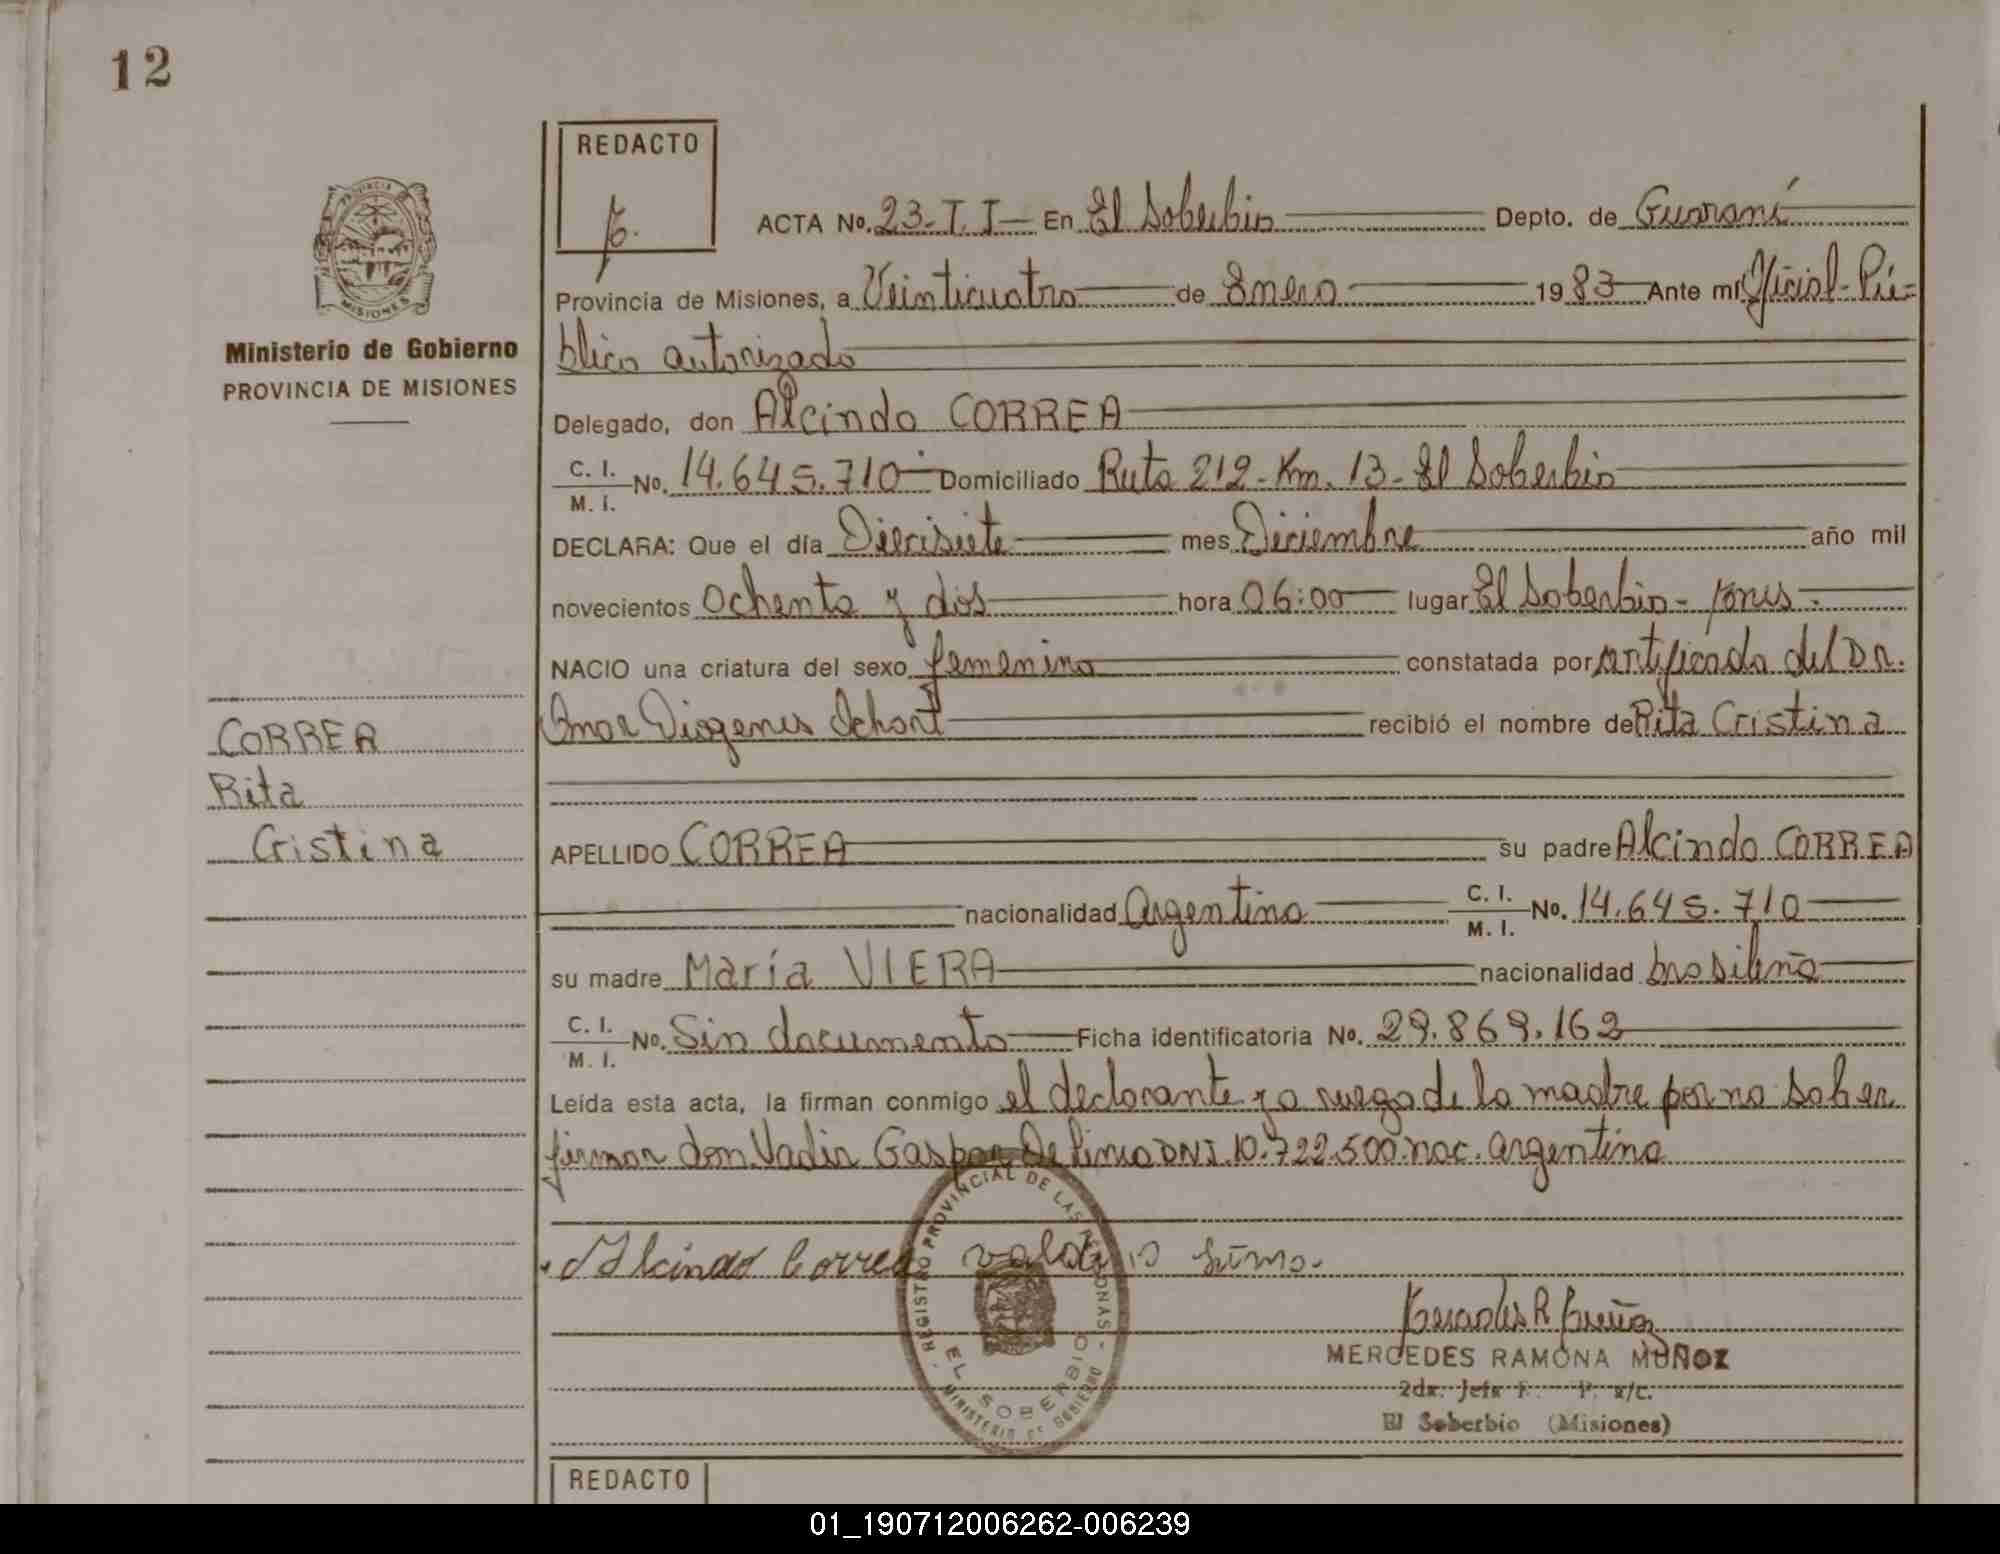 12
REDACTO
PROVINCIA
MISIONES
Ministerio de Gobierno
PROVINCIA DE MISIONES
ACTA No. 23-T.I- En El Soberbio Depto. de Guaraní
Provincia de Misiones, a Veinticuatro de Enero 1983 Ante mí Oficial Pú=
blico autorizado
Delegado, don Alcindo CORREA
C. I. / M. I. No. 14.645.710 Domiciliado Ruta 212-Km. 13-El Soberbio
DECLARA: Que el día Diecisiete mes Diciembre año mil
novecientos Ochenta y dos hora 06:00 lugar El Soberbio-
NACIO una criatura del sexo femenino constatada por certificado del Dr.
Omar Diogenes recibió el nombre de Rita Cristina
CORREA
Rita
Cristina
APELLIDO CORREA su padre Alcindo CORREA
nacionalidad Argentina C. I. / M. I. No. 14.645.710
su madre María VIERA nacionalidad brasileña
C. I. / M. I. No. Sin documento Ficha identificatoria No. 29.869.162
Leída esta acta, la firman conmigo el declarante y a ruego de la madre por no saber
firmar don Vadir Gaspar De Lima DNI.10.722.500.nac. argentina
Alcindo Correa
REGISTRO PROVINCIAL DE LAS PERSONAS
EL SOBERBIO
MINISTERIO DE GOBIERNO
MERCEDES RAMONA MUÑOZ
El Soberbio (Misiones)
REDACTO
01_190712006262-006239